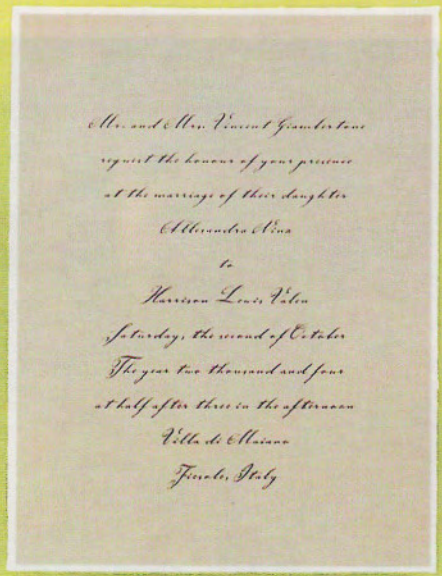 Mr. and Mrs. Vincent Giambertone
request the honour of your presence
at the marriage of their daughter
Allesandra Nina
to
Harrison Louis Valen
Saturday, the second of October
The year two thousand and four
at half after three in the afternoon
Villa di Maiano
Fiesole, Italy